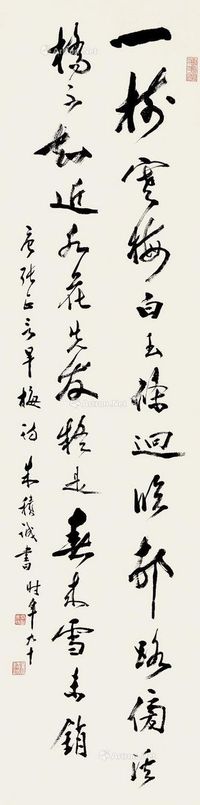 一樹寒梅白玉條迥臨邨路傍溪
橋不知近水花先發疑是春來雪未銷
唐張正言早梅詩 朱積誠書 时年九十